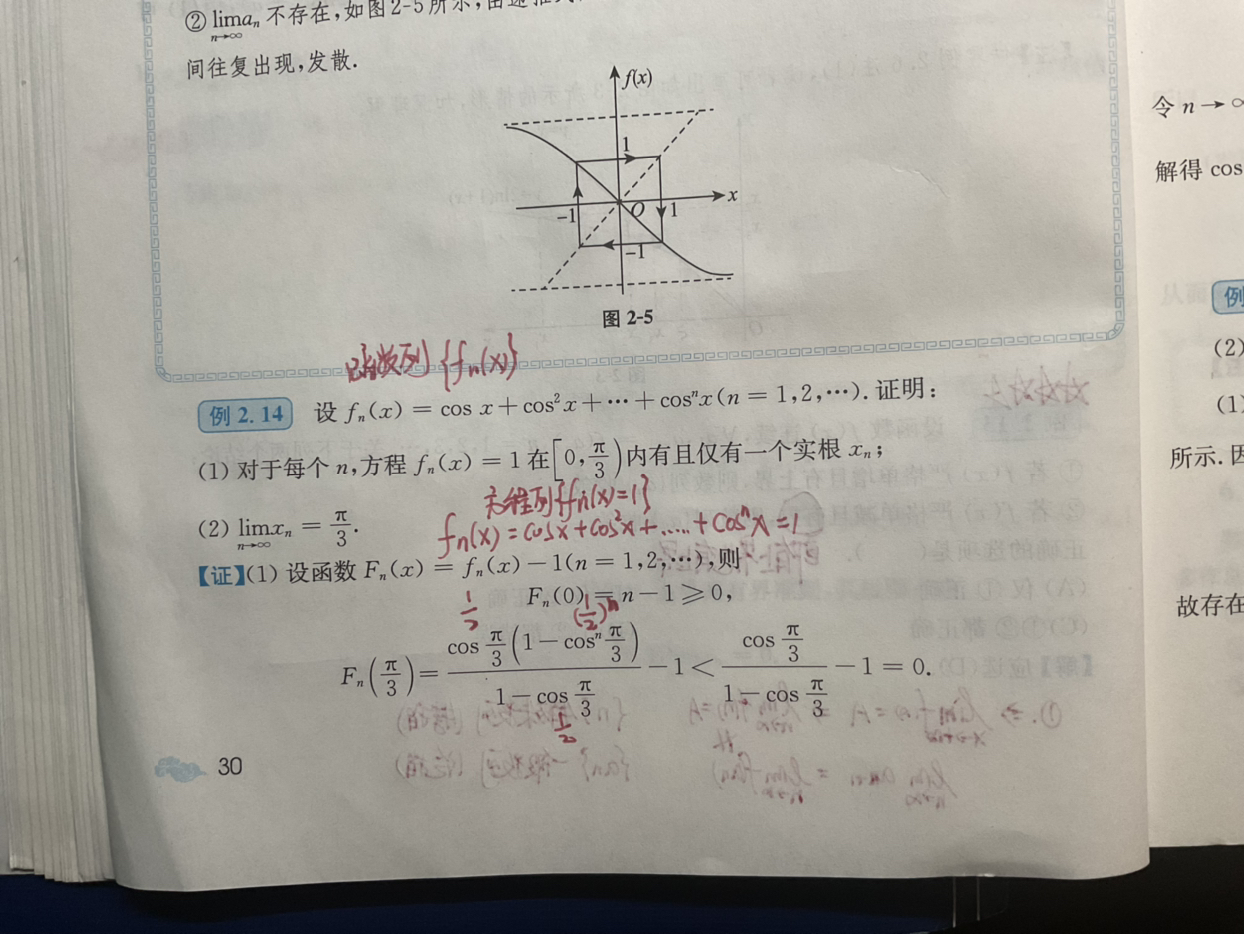 ② lim aₙ 不存在,如图2-5所示,
n→∞
间往复出现,发散.
f(x)
1
x
-1
O
1
-1
图 2-5
函数列{fₙ(x)}
例 2.14 设 fₙ(x) = cos x + cos²x + ⋯ + cosⁿx (n = 1,2,⋯). 证明:
(1) 对于每个 n,方程 fₙ(x) = 1 在[0, π/3)内有且仅有一个实根 xₙ;
方程列{fₙ(x)=1}
(2) lim xₙ = π/3.
n→∞
fₙ(x) = cosx + cos²x + ...... + cosⁿx = 1
【证】(1) 设函数 Fₙ(x) = fₙ(x) − 1 (n = 1,2,⋯),则
Fₙ(0) = n − 1 ⩾ 0,
1/2
(1/2)ⁿ
Fₙ(π/3) = cos π/3 (1 − cosⁿ π/3) / (1 − cos π/3) − 1 < cos π/3 / (1 − cos π/3) − 1 = 0.
1/2
30
令 n → ∞
解得 cos
例
(2)
(1)
所示.因
故存在